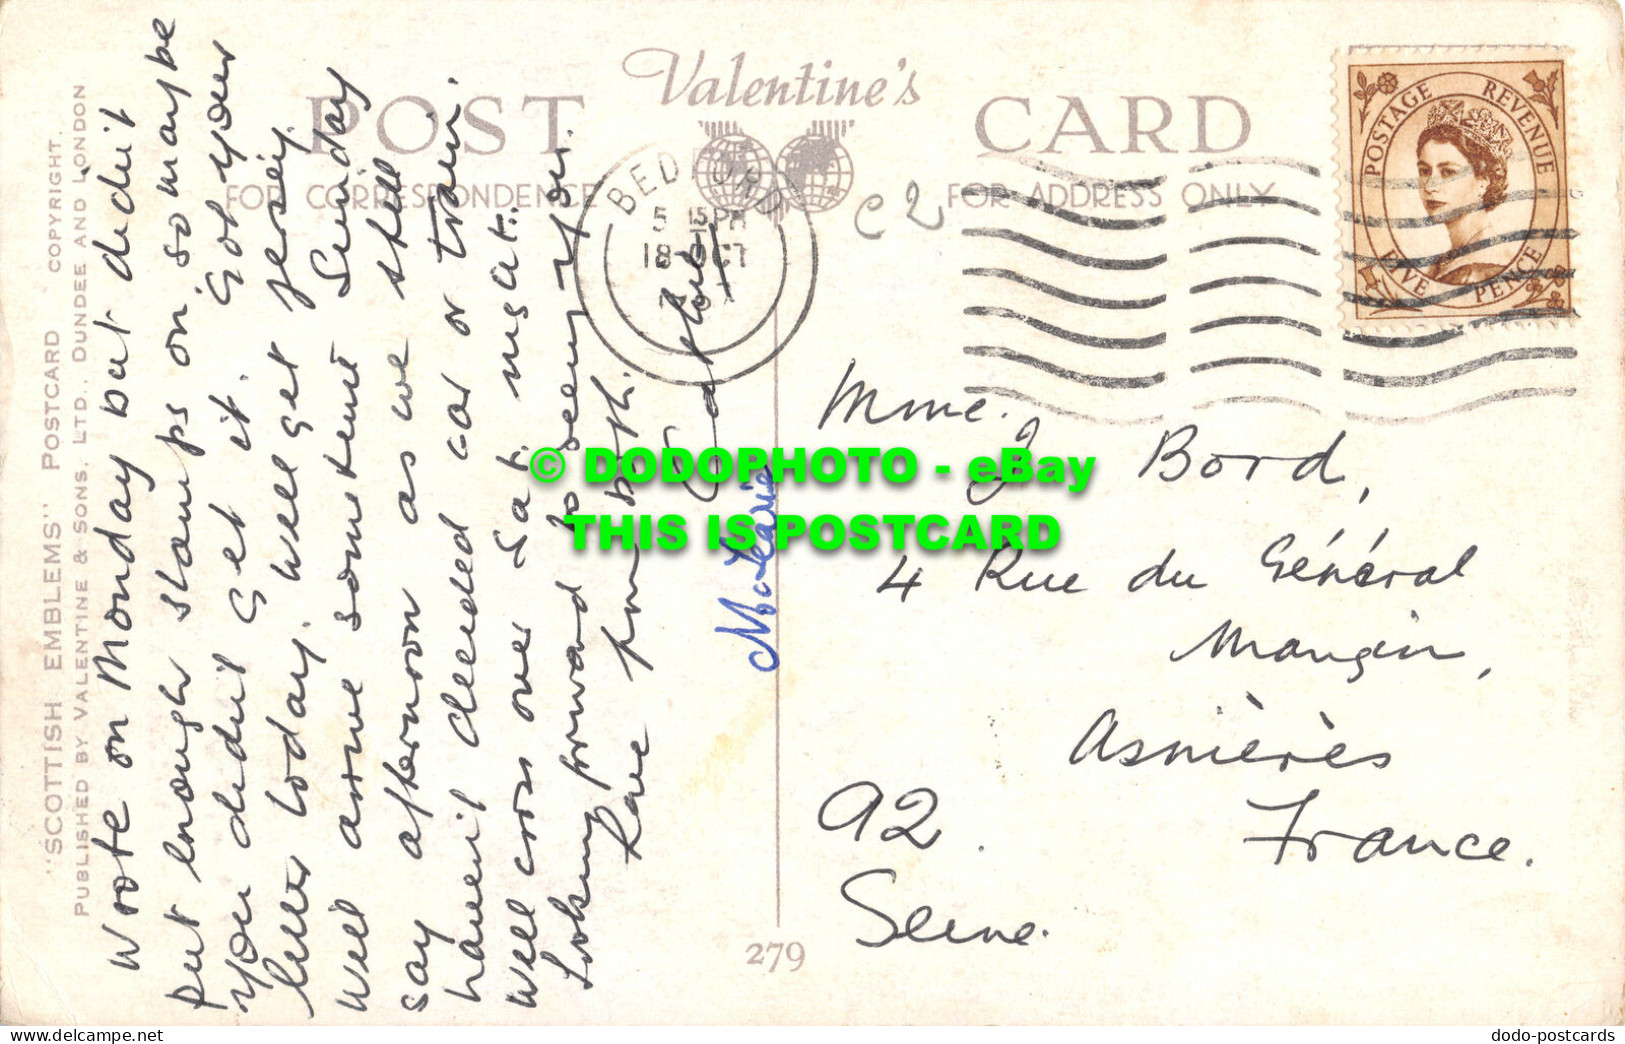 "SCOTTISH EMBLEMS" POSTCARD COPYRIGHT.
PUBLISHED BY VALENTINE & SONS, LTD., DUNDEE AND LONDON
Valentine's
POST CARD
FOR CORRESPONDENCE
FOR ADDRESS ONLY
BEDFORD
5 15 PM
18 OCT
POSTAGE REVENUE
FIVE PENCE
C 2
Wrote on Monday but didnit
put enough stamps on, so maybe
you didnit get it. Got your
letter today. Will get jersey.
Will arrive sometime Sunday
say afternoon as we still
havenit decided car or train.
Will cross over Sat. night.
Looking forward to seeing you.
Love from both.
Mme. J Bord,
4 Rue du Général
Mangin,
Asnières
92.
France.
Seine.
279
© DODOPHOTO - eBay
THIS IS POSTCARD
dodo-postcards